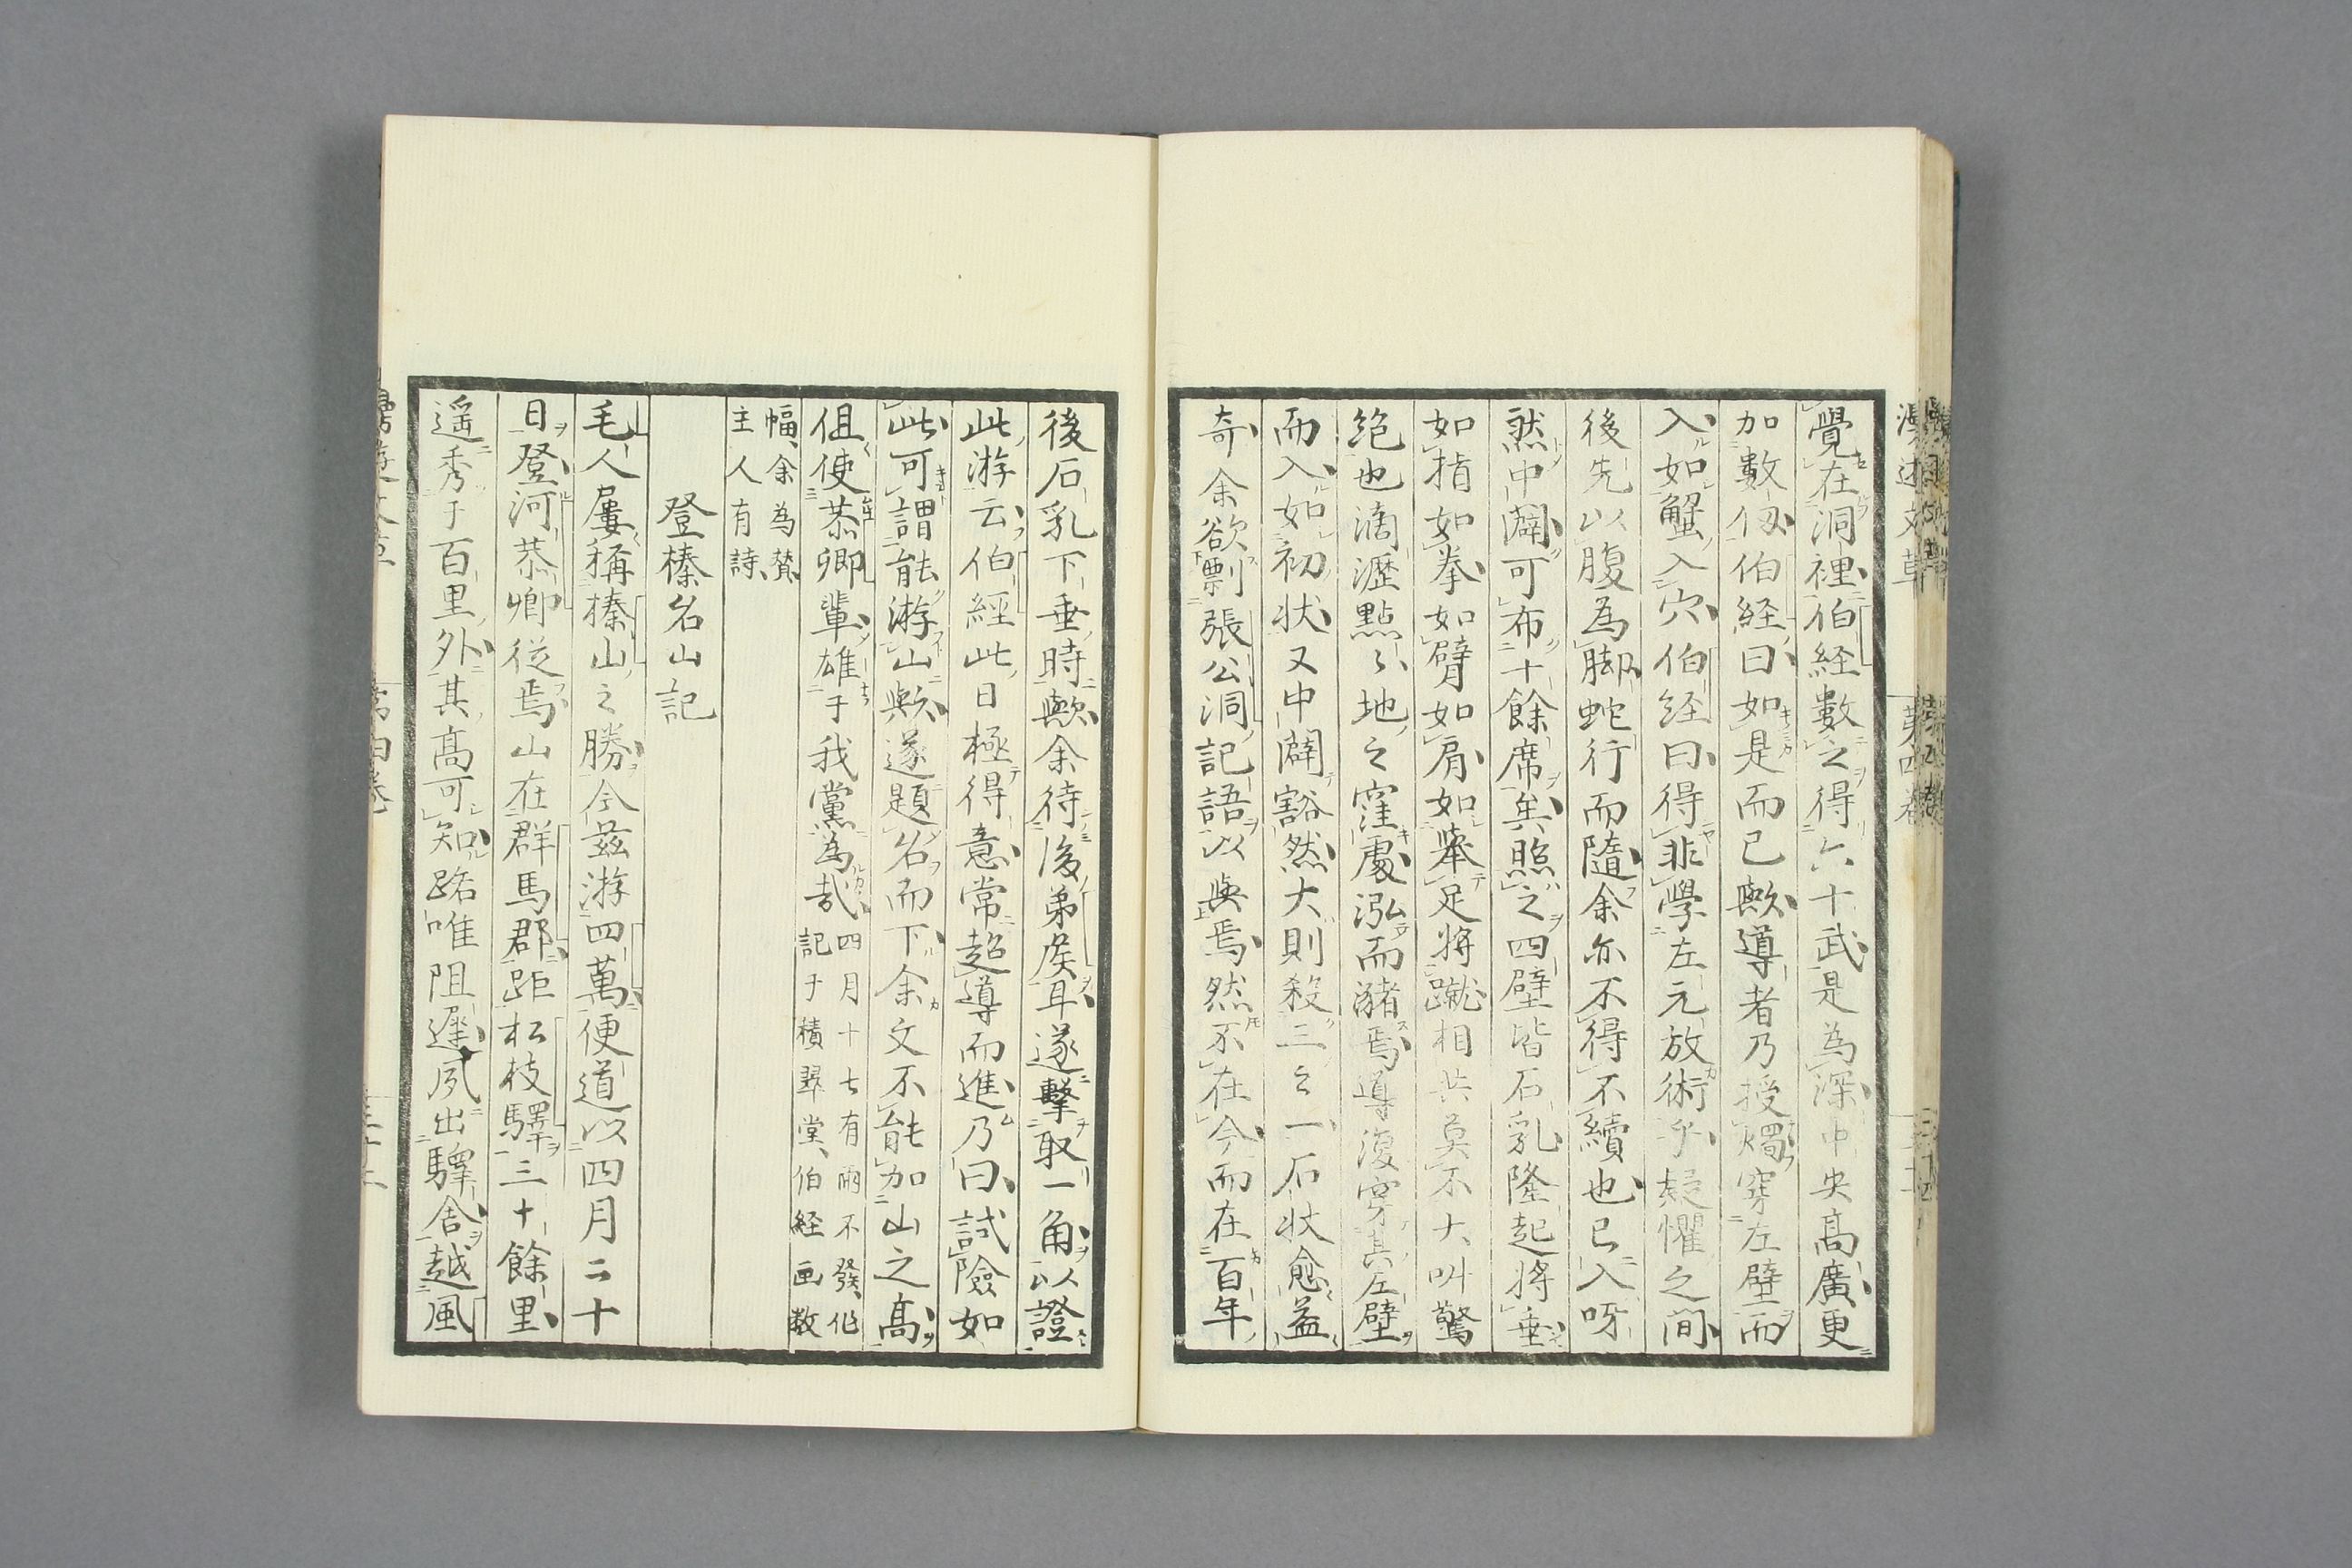 覺在洞裡伯経數之得六十武是為深中央高廣更
加數仭伯経曰如是而已歟導者乃授燭穿左壁而
入如蟹入穴伯経曰得非學左元放術乎疑懼之間
後先以腹為脚蛇行而隨余亦不得不續也已入呀
然中闢可布十餘席矣照之四壁皆石乳隆起将垂
如指如拳如臂如肩如擧足将蹴相共莫不大叫驚
絶也滴瀝點々地之窪處泓而瀦焉導復穿其左壁
而入如初状又中闢豁然大則殺三之一石状愈益
奇余欲剽張公洞記語以與焉然不在今而在百年
後石乳下垂時歟余待後弟矦耳遂擊取一角以證
此游云伯經此日極得意常超導而進乃曰試險如
此可謂能游山歟遂題名而下余文不能加山之高
伹使恭卿輩雄于我黨為哉
四月十七有雨不發作
記于積翠堂伯経画数
幅余為賛
主人有詩
登榛名山記
毛人屢稱榛山之勝今茲游四萬便道以四月二十
日登河恭卿従焉山在群馬郡距松枝驛三十餘里
遥秀于百里外其髙可知路唯阻遲夙出驛舎越風
漫遊文草
第四巻